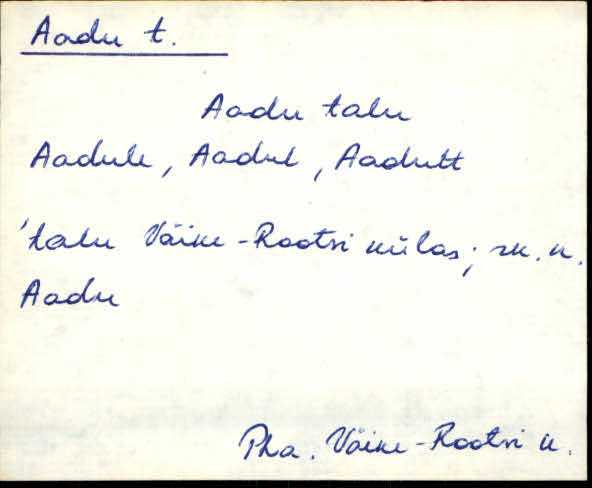 Aadu t.
Aadu talu
Aadule, Aadul, Aadult
'talu Väike-Rootsi külas; rk. n.
Aadu
Pha. Väike-Rootsi k.